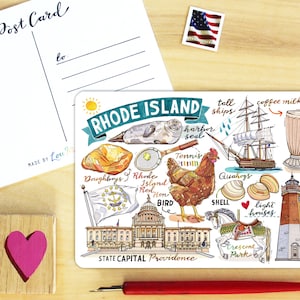 Post Card
to
RHODE ISLAND
tall ships
coffee milk
harbor seal
Tennis
Doughboys
Rhode Island Red Hen
Quahogs
BIRD
SHELL
light houses
Crescent Park
STATE CAPITAL Providence